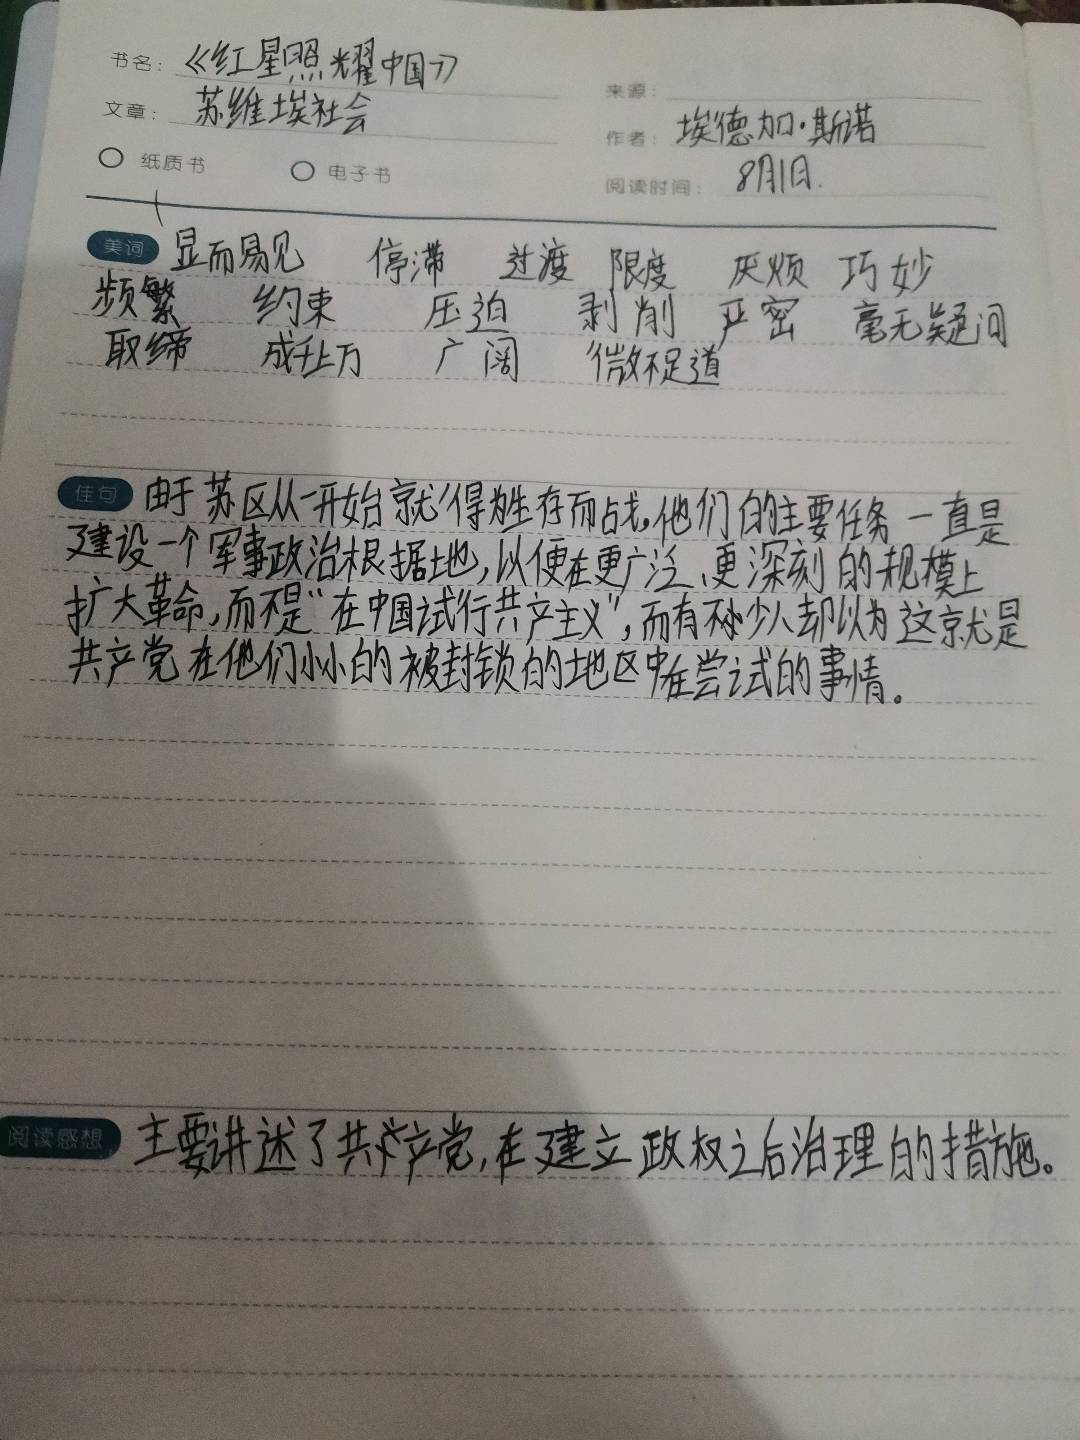 书名：《红星照耀中国》
来源：
文章：苏维埃社会
作者：埃德加·斯诺
纸质书 电子书
阅读时间：8月1日.
美词 显而易见 停滞 过渡 限度 厌烦 巧妙
频繁 约束 压迫 剥削 严密 毫无疑问
取缔 成千上万 广阔 微不足道
佳句 由于苏区从一开始就得为生存而战。他们的主要任务一直是
建设一个军事政治根据地，以便在更广泛、更深刻的规模上
扩大革命，而不是“在中国试行共产主义”，而有不少人却以为这就是
共产党在他们小小的被封锁的地区中在尝试的事情。
阅读感想 主要讲述了共产党，在建立政权之后治理的措施。